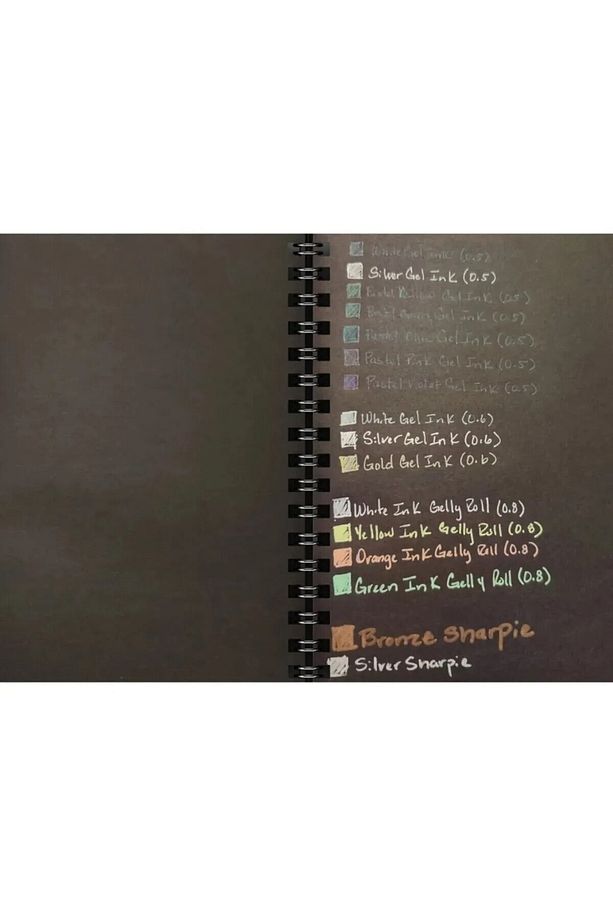 White Gel Ink (0.5)
Silver Gel Ink (0.5)
Pastel Yellow Gel Ink (0.5)
Pastel Green Gel Ink (0.5)
Pastel Blue Gel Ink (0.5)
Pastel Pink Gel Ink (0.5)
Pastel Violet Gel Ink (0.5)
White Gel Ink (0.6)
Silver Gel Ink (0.6)
Gold Gel Ink (0.6)
White Ink Gelly Roll (0.8)
Yellow Ink Gelly Roll (0.8)
Orange Ink Gelly Roll (0.8)
Green Ink Gelly Roll (0.8)
Bronze Sharpie
Silver Sharpie